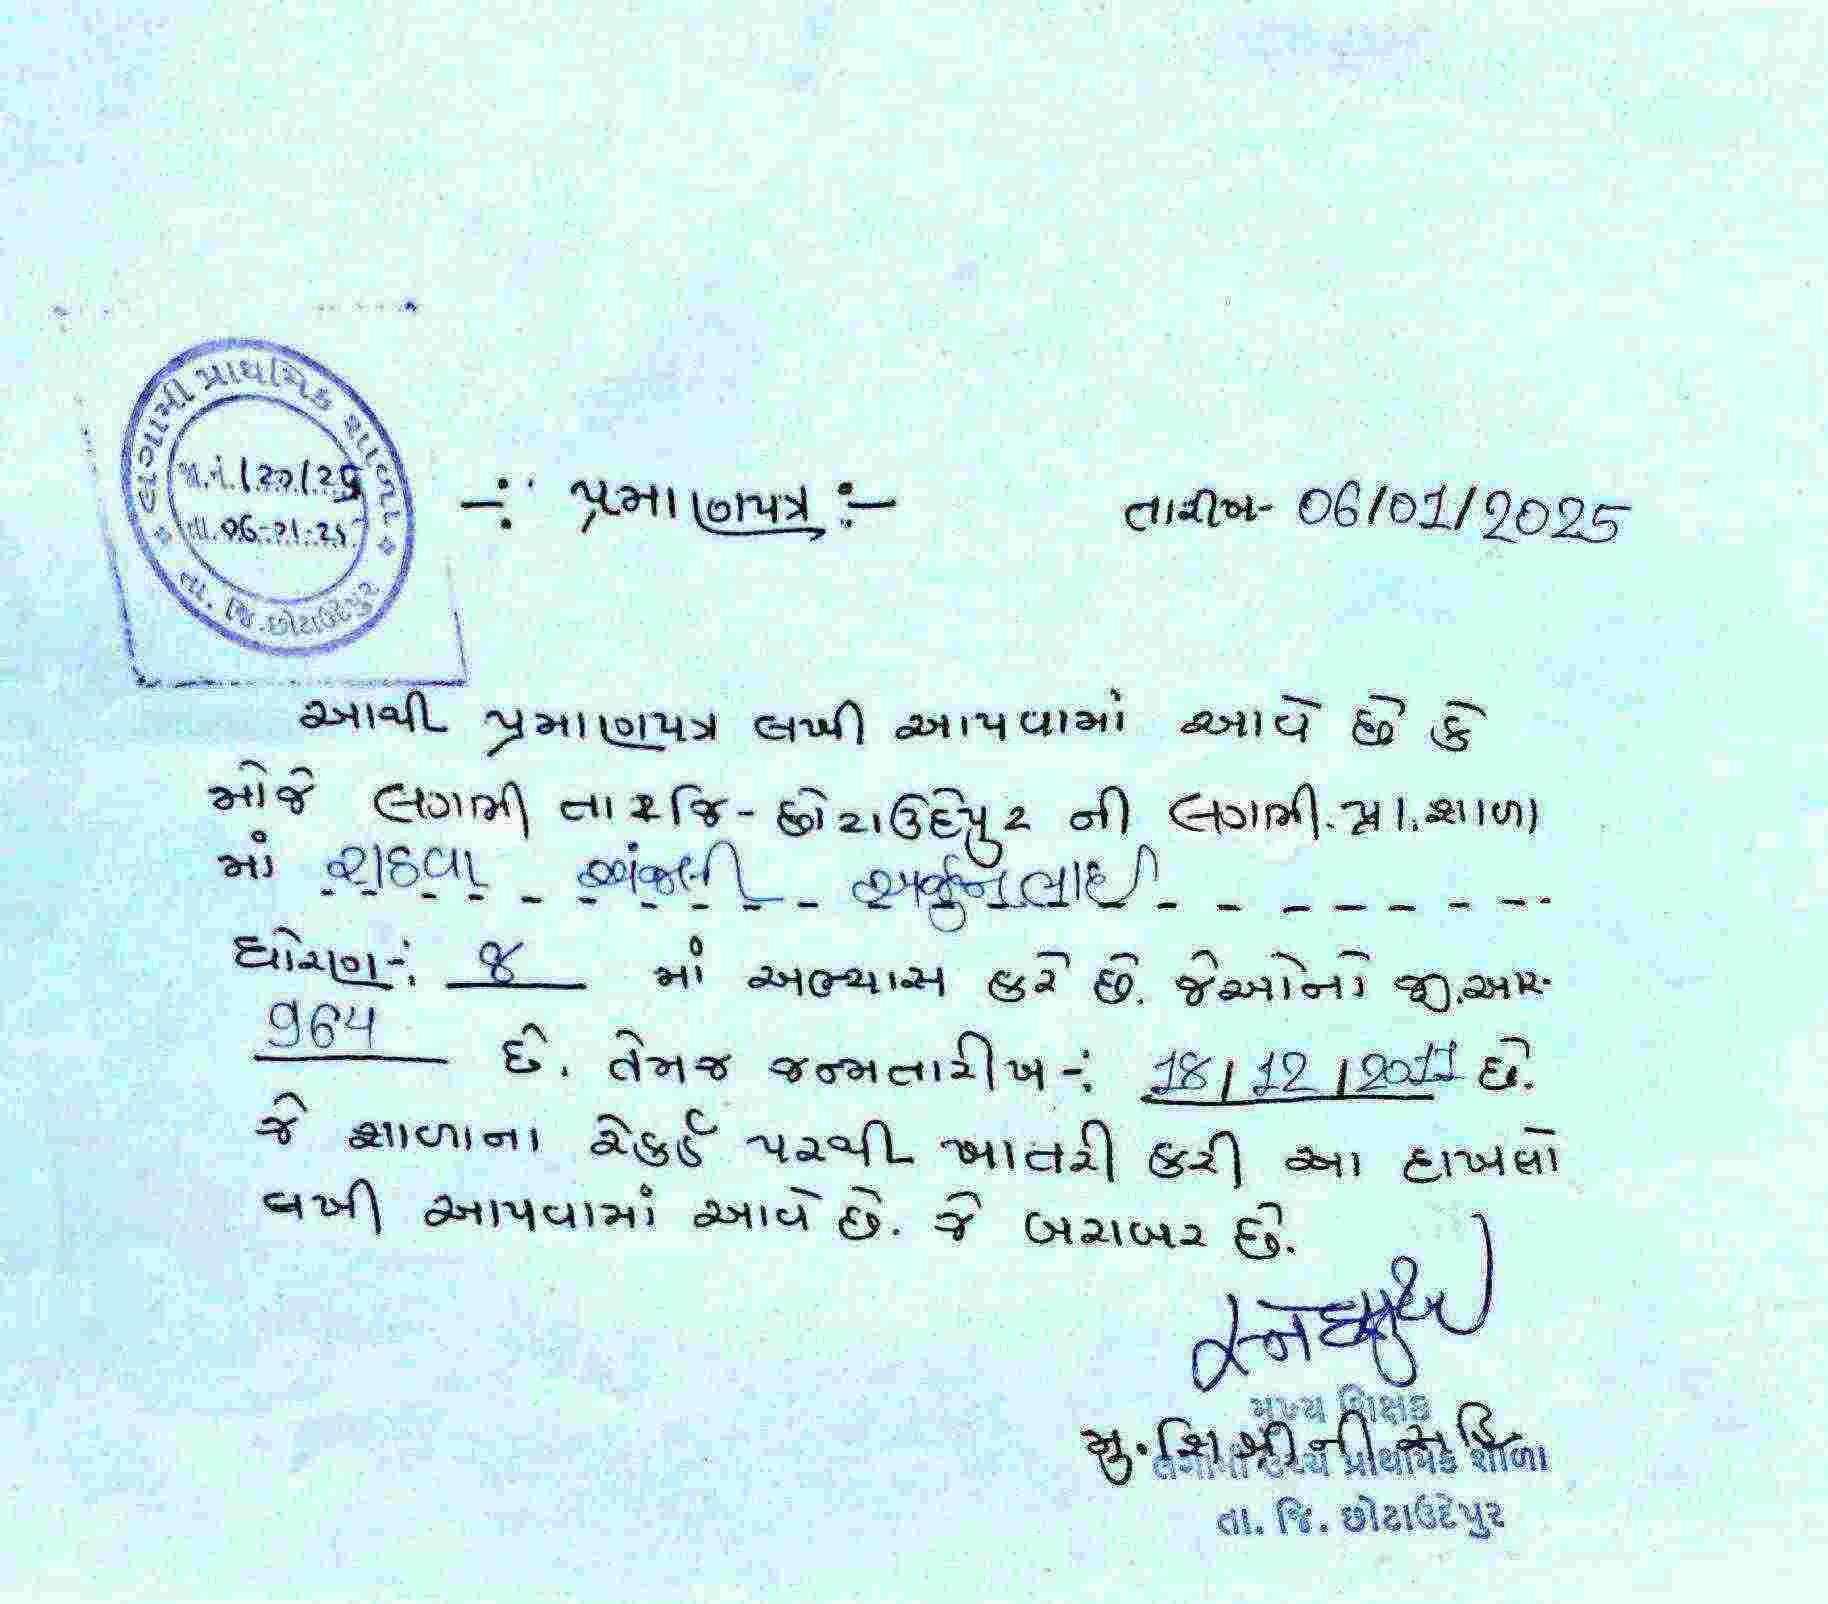 લગામી પ્રાથમિક શાળા
જા.નં. /20/25
તા. 06-01-25
તા. જિ. છોટાઉદેપુર
-: પ્રમાણપત્ર :-
તારીખ- 06/01/2025
આથી પ્રમાણપત્ર લખી આપવામાં આવે છે કે
મોજે લગામી તા૨જિ-છોટાઉદેપુર ની લગામી.પ્રા.શાળા
માં રાઠવા અંજલી અર્જુનભાઈ
ધોરણ-: ૪ માં અભ્યાસ કરે છે. જેઓનો જી.આર.
964 છે. તેમજ જન્મતારીખ-: 18/12/2011 છે.
જે શાળાના રેકર્ડ પરથી ખાતરી કરી આ દાખલો
લખી આપવામાં આવે છે. જે બરાબર છે.
મુખ્ય શિક્ષક
મુ.શિ.શ્રીની સહિ
પ્રાથમિક શાળા
તા. જિ. છોટાઉદેપુર